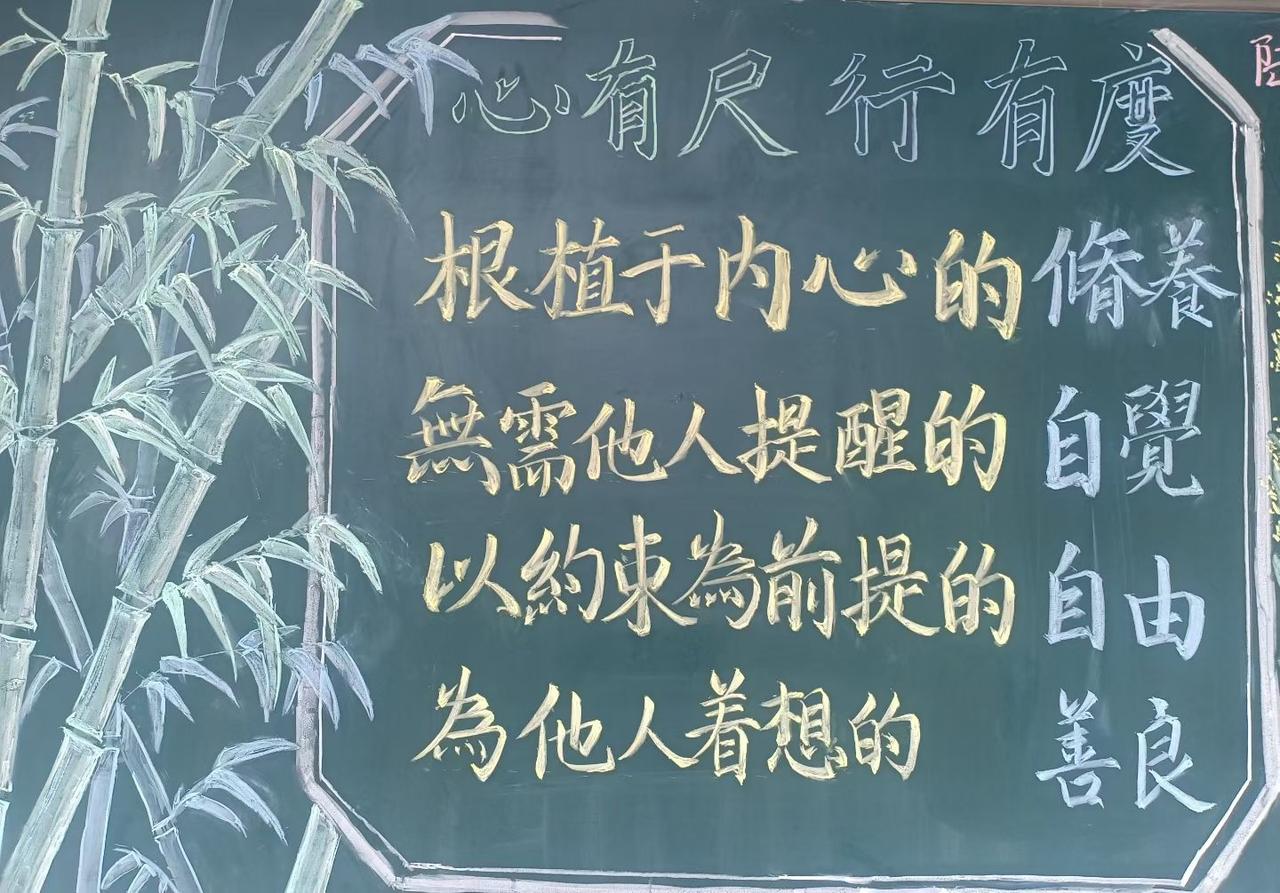 心有尺 行有度
根植于内心的脩養
無需他人提醒的自覺
以約束為前提的自由
為他人着想的善良